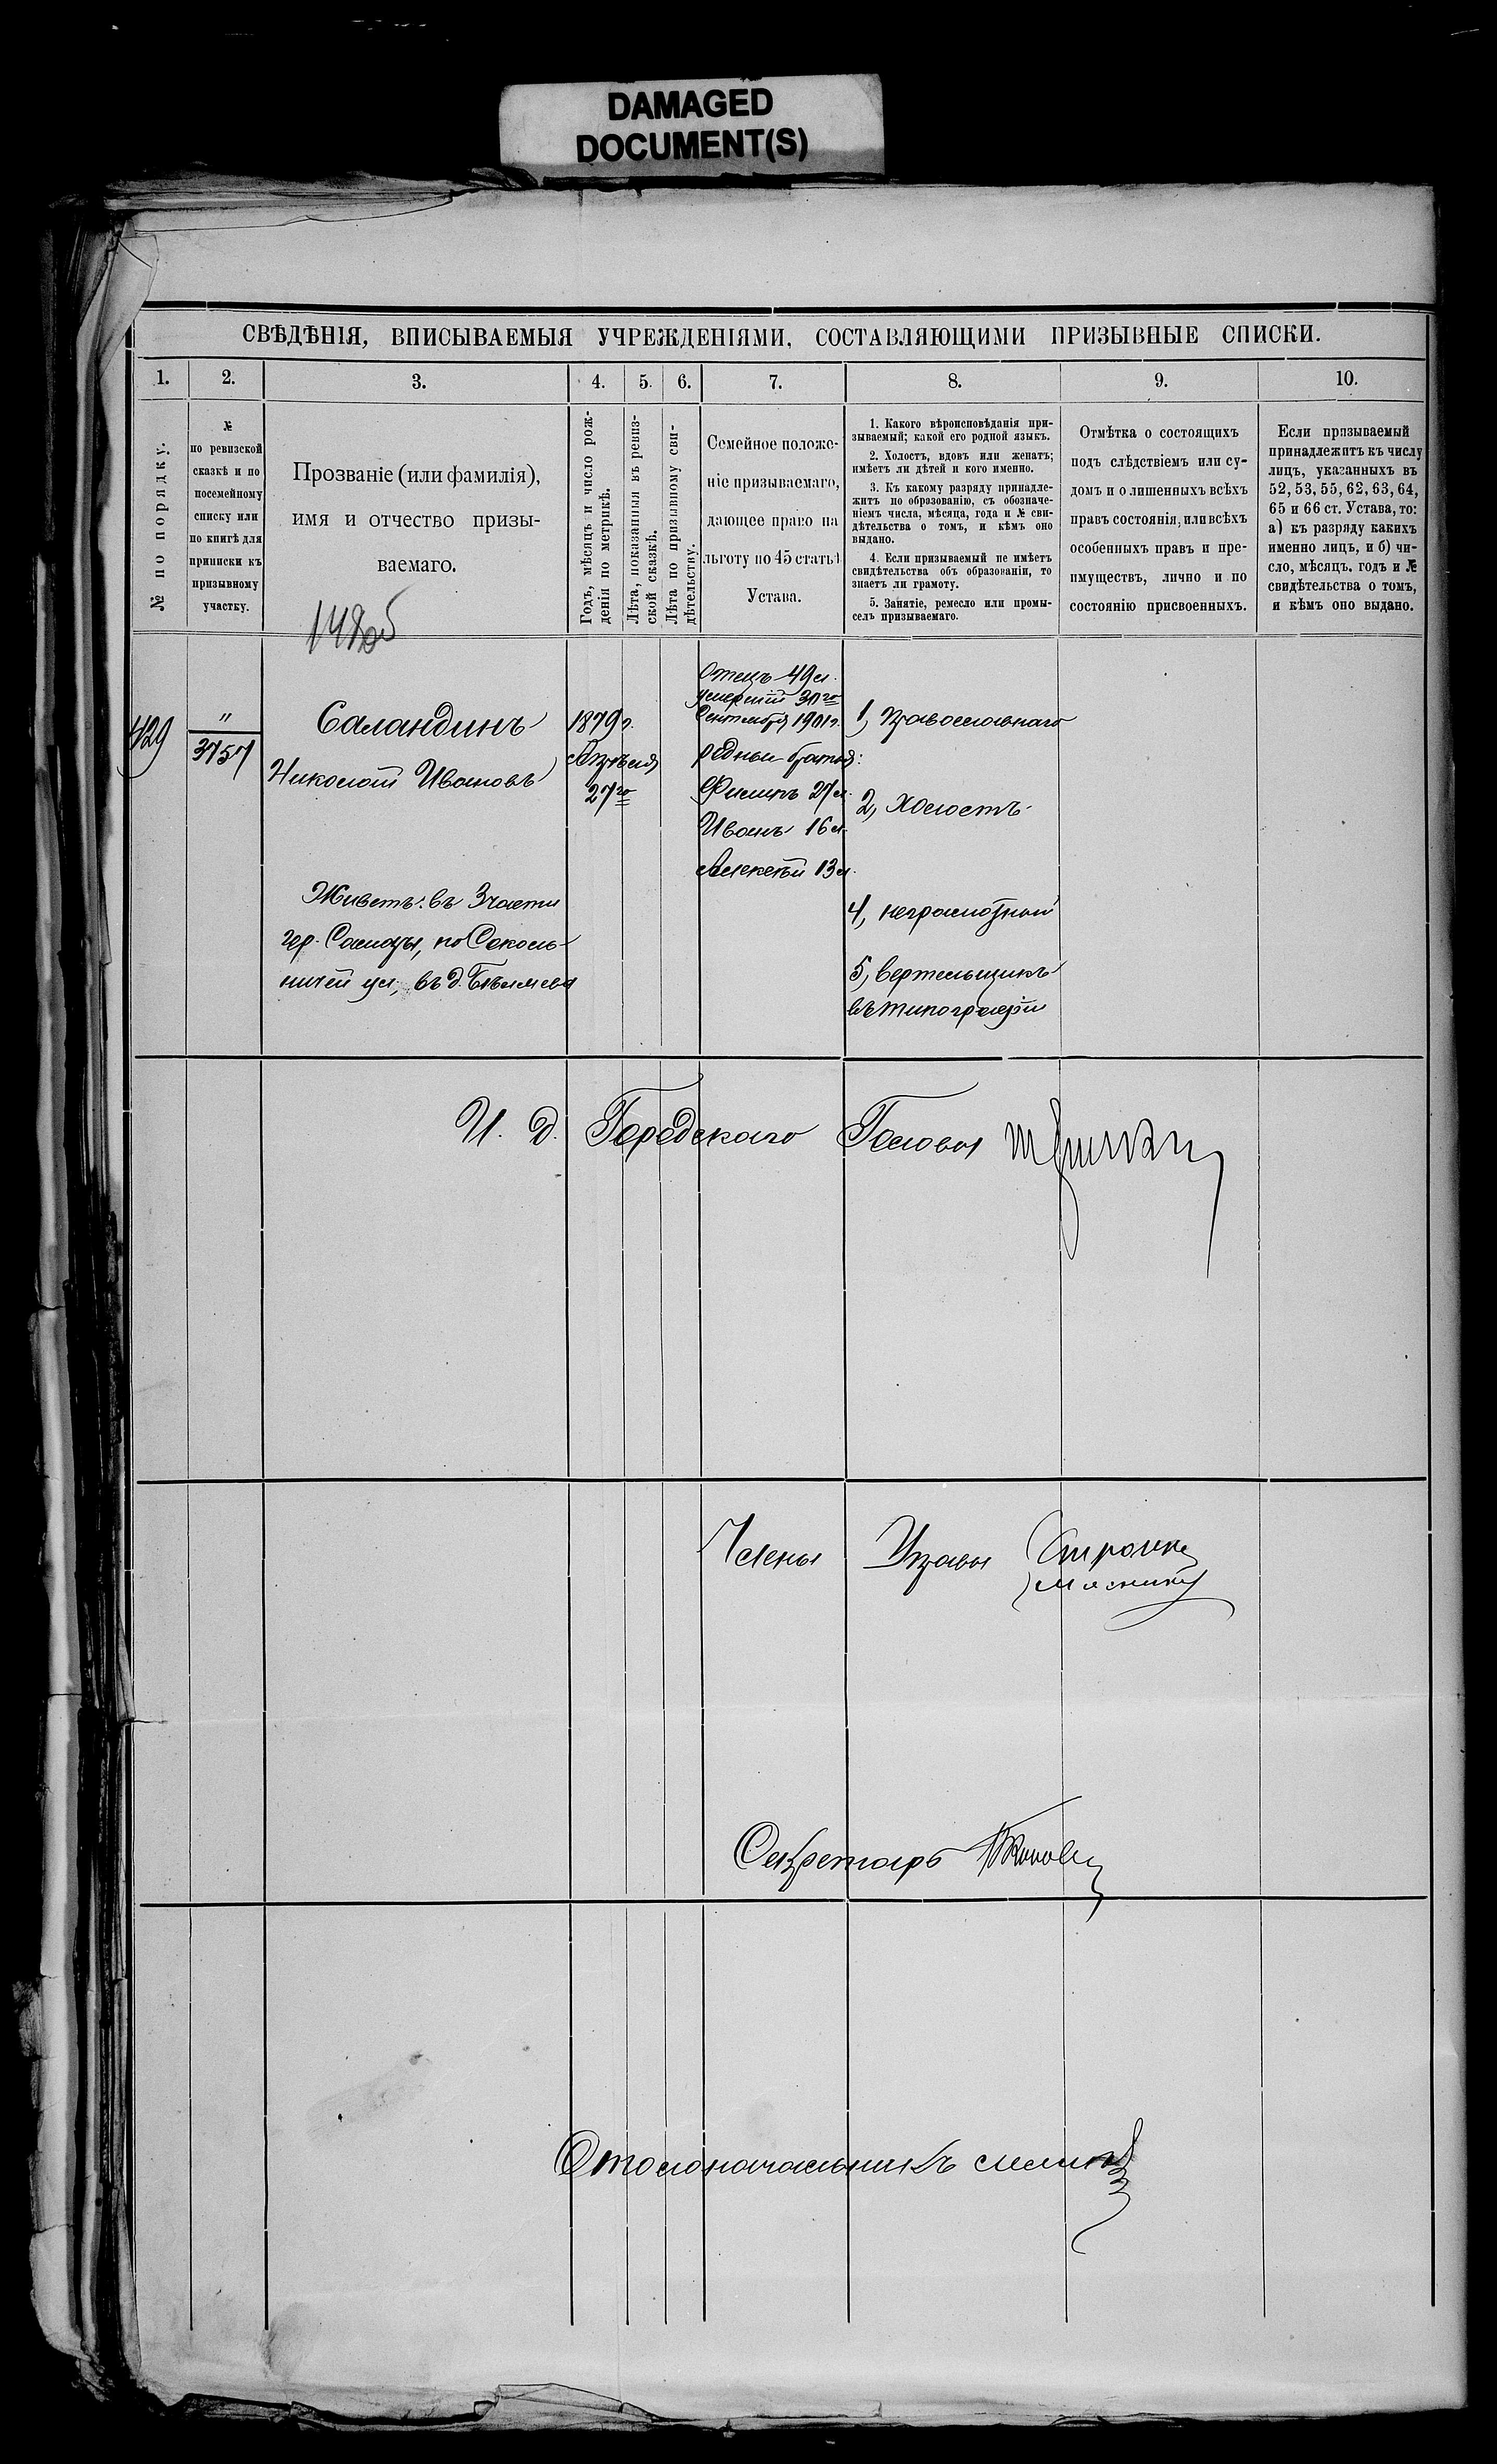 DAMAGED
DOCUMENT(S)
СВѢДѢНІЯ, ВПИСЫВАЕМЫЯ УЧРЕЖДЕНІЯМИ, СОСТАВЛЯЮЩИМИ ПРИЗЫВНЫЕ СПИСКИ.
1.
2.
3.
4.
5.
6.
7.
8.
9.
10.
№ по порядку.
№
по ревизской
сказкѣ и по
посемейному
списку или
по книгѣ для
приписки къ
призывному
участку.
Прозваніе (или фамилія),
имя и отчество призы-
ваемаго.
Годъ, мѣсяцъ и число рож-
денія по метрикѣ.
Лѣта, показанныя въ ревиз-
ской сказкѣ.
Лѣта по призывному сви-
дѣтельству.
Семейное положе-
ніе призываемаго,
дающее право на
льготу по 45 статьѣ
Устава.
1. Какого вѣроисповѣданія при-
зываемый; какой его родной языкъ.
2. Холостъ, вдовъ или женатъ;
имѣетъ ли дѣтей и кого именно.
3. Къ какому разряду принадле-
житъ по образованію, съ обозначе-
ніемъ числа, мѣсяца, года и № сви-
дѣтельства о томъ, и кѣмъ оно
выдано.
4. Если призываемый не имѣетъ
свидѣтельства объ образованіи, то
знаетъ ли грамоту.
5. Занятіе, ремесло или промы-
селъ призываемаго.
Отмѣтка о состоящихъ
подъ слѣдствіемъ или су-
домъ и о лишенныхъ всѣхъ
правъ состоянія, или всѣхъ
особенныхъ правъ и пре-
имуществъ, лично и по
состоянію присвоенныхъ.
Если призываемый
принадлежитъ къ числу
лицъ, указанныхъ въ
52, 53, 55, 62, 63, 64,
65 и 66 ст. Устава, то:
а) къ разряду какихъ
именно лицъ, и б) чи-
сло, мѣсяцъ, годъ и №
свидѣтельства о томъ,
и кѣмъ оно выдано.
429
"
3757
Саландинъ
Николай Ивановъ
Живетъ въ 3 части
гор. Самары, по Соколь-
ничей ул, въ д.
1879 г.
Апрѣля
27го
Отецъ 49 л.
умершій 30го
Сентября 1901 г.
родные братья:
Филипъ 27 л.
Иванъ 16 л.
Алексѣй 13 л.
1, Православнаго
2, Холостъ
4, неграмотный
5, вертельщикъ
въ типографіи
И. д. Городскаго Головы
Члены Управы
Секретарь
Столоначальникъ